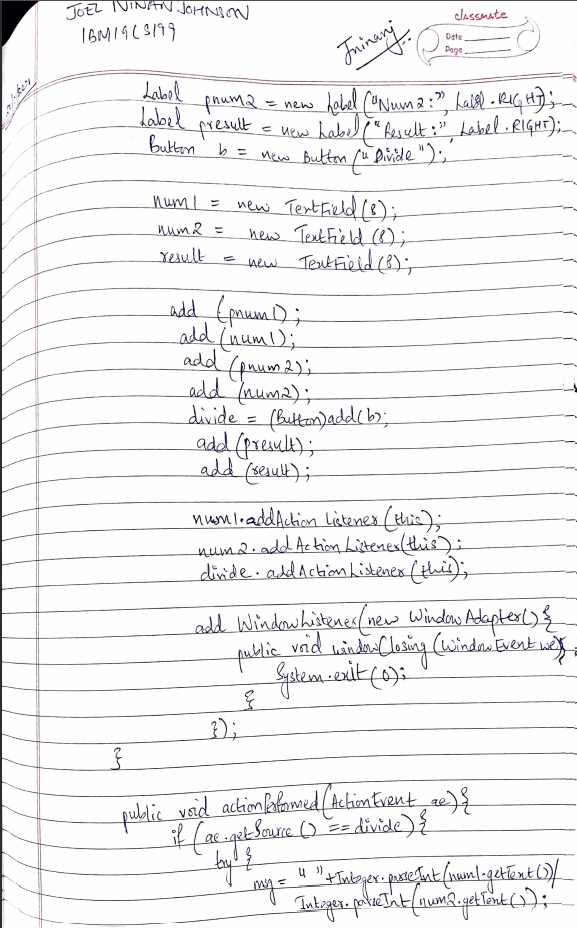 JOEL NINAN JOHNSON
1BM19CS199
classmate
Date
Page
Label pnum2 = new Label("Num2:", Label.RIGHT);
Label presult = new Label("Result:", Label.RIGHT);
Button b = new Button("Divide");
num1 = new TextField(8);
num2 = new TextField(8);
result = new TextField(8);
add (pnum1);
add (num1);
add (pnum2);
add (num2);
divide = (Button)add(b);
add (presult);
add (result);
num1.addActionListener(this);
num2.addActionListener(this);
divide.addActionListener(this);
add WindowListener(new WindowAdapter() {
public void windowClosing (WindowEvent we){
System.exit(0);
}
});
}
public void actionPerformed(ActionEvent ae){
if (ae.getSource() == divide){
try {
msg = " "+Integer.parseInt(num1.getText())/
Integer.parseInt(num2.getText());